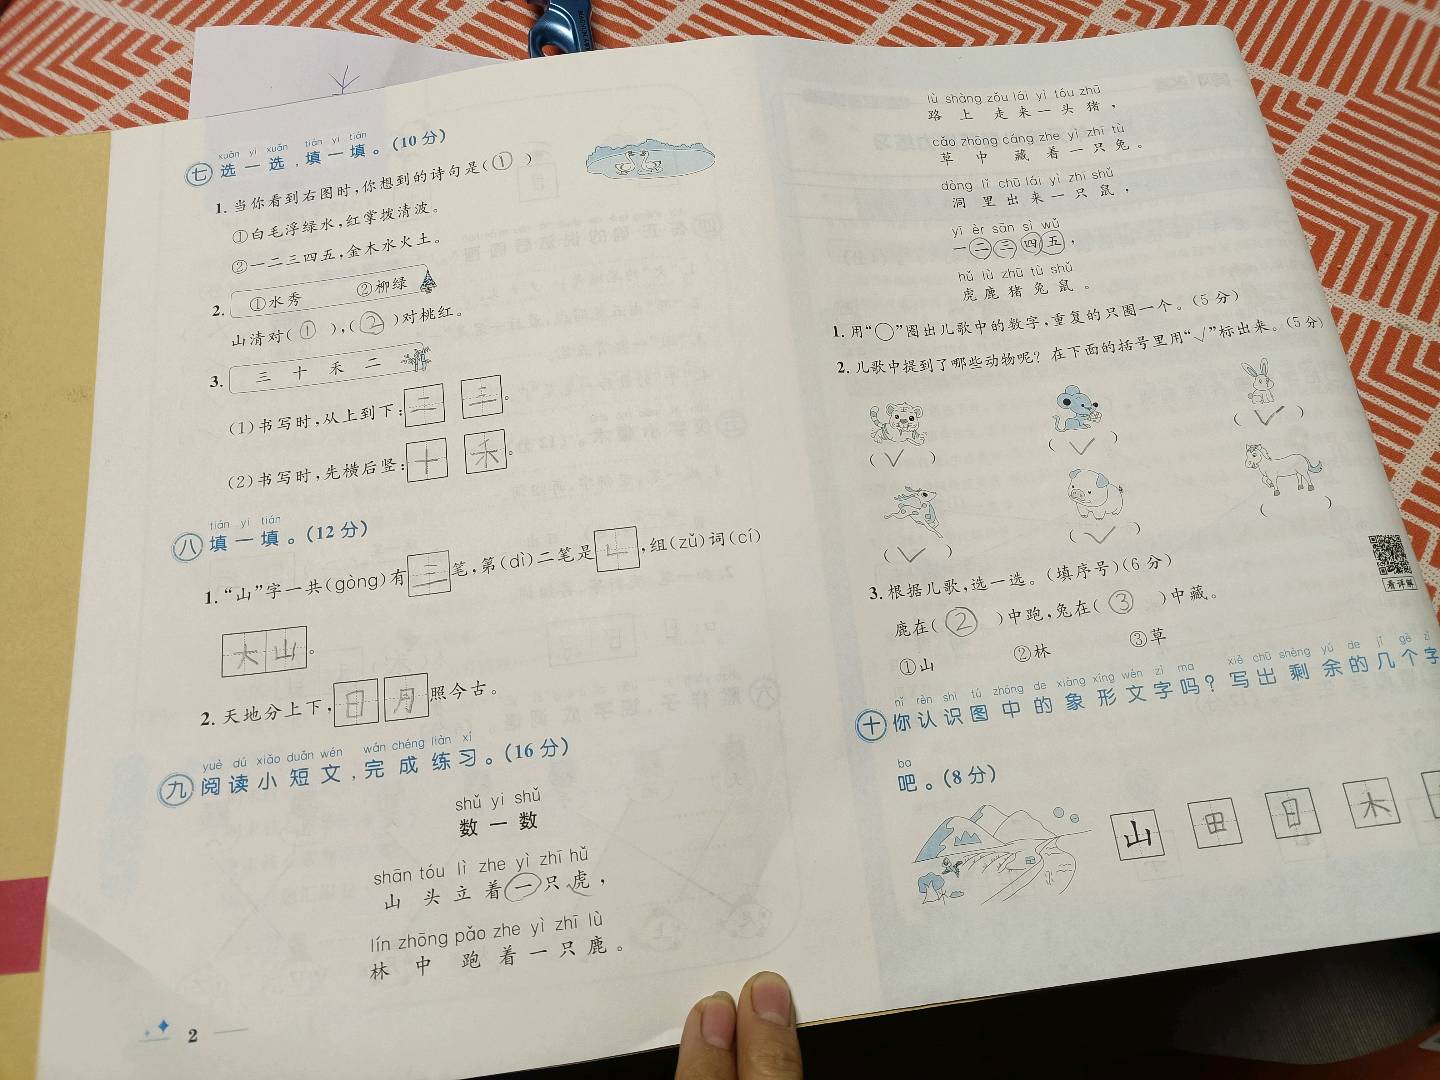 xuǎn yi xuǎn tián yi tián
七 选一选，填一填。(10分)
1. 当你看到右图时，你想到的诗句是( ① )
①白毛浮绿水，红掌拨清波。
②一二三四五，金木水火土。
2. ①水秀 ②柳绿
山清对( ① )，( ② )对桃红。
3. 三 十 禾 二
(1)书写时，从上到下：二 三。
(2)书写时，先横后竖：十 禾。
tián yi tián
八 填一填。(12分)
1. “山”字一共(gòng)有三笔，第(dì)二笔是ㄴ，组(zǔ)词(cí)
大山。
2. 天地分上下，日月照今古。
yuè dú xiǎo duǎn wén wán chéng liàn xí
九 阅读小短文，完成练习。(16分)
shǔ yi shǔ
数一数
shān tóu lì zhe yì zhī hǔ
山头立着一只虎，
lín zhōng pǎo zhe yì zhī lù
林中跑着一只鹿。
2
lù shàng zǒu lái yì tóu zhū
路上走来一头猪，
cǎo zhōng cáng zhe yì zhī tù
草中藏着一只兔。
dòng lǐ chū lái yì zhī shǔ
洞里出来一只鼠，
yī èr sān sì wǔ
一二三四五，
hǔ lù zhū tù shǔ
虎鹿猪兔鼠。
1. 用“○”圈出儿歌中的数字，重复的只圈一个。(5分)
2. 儿歌中提到了哪些动物呢？在下面的括号里用“√”标出来。(5分)
( √ ) ( √ ) ( √ )
( √ ) ( √ ) ( )
3. 根据儿歌，选一选。(填序号)(6分)
看详解
鹿在( ② )中跑，兔在( ③ )中藏。
①山 ②林 ③草
nǐ rèn shi tú zhōng de xiàng xíng wén zì ma xiě chū shèng yú de jǐ gè zì
十 你认识图中的象形文字吗？写出剩余的几个字
ba
吧。(8分)
山 田 日 木